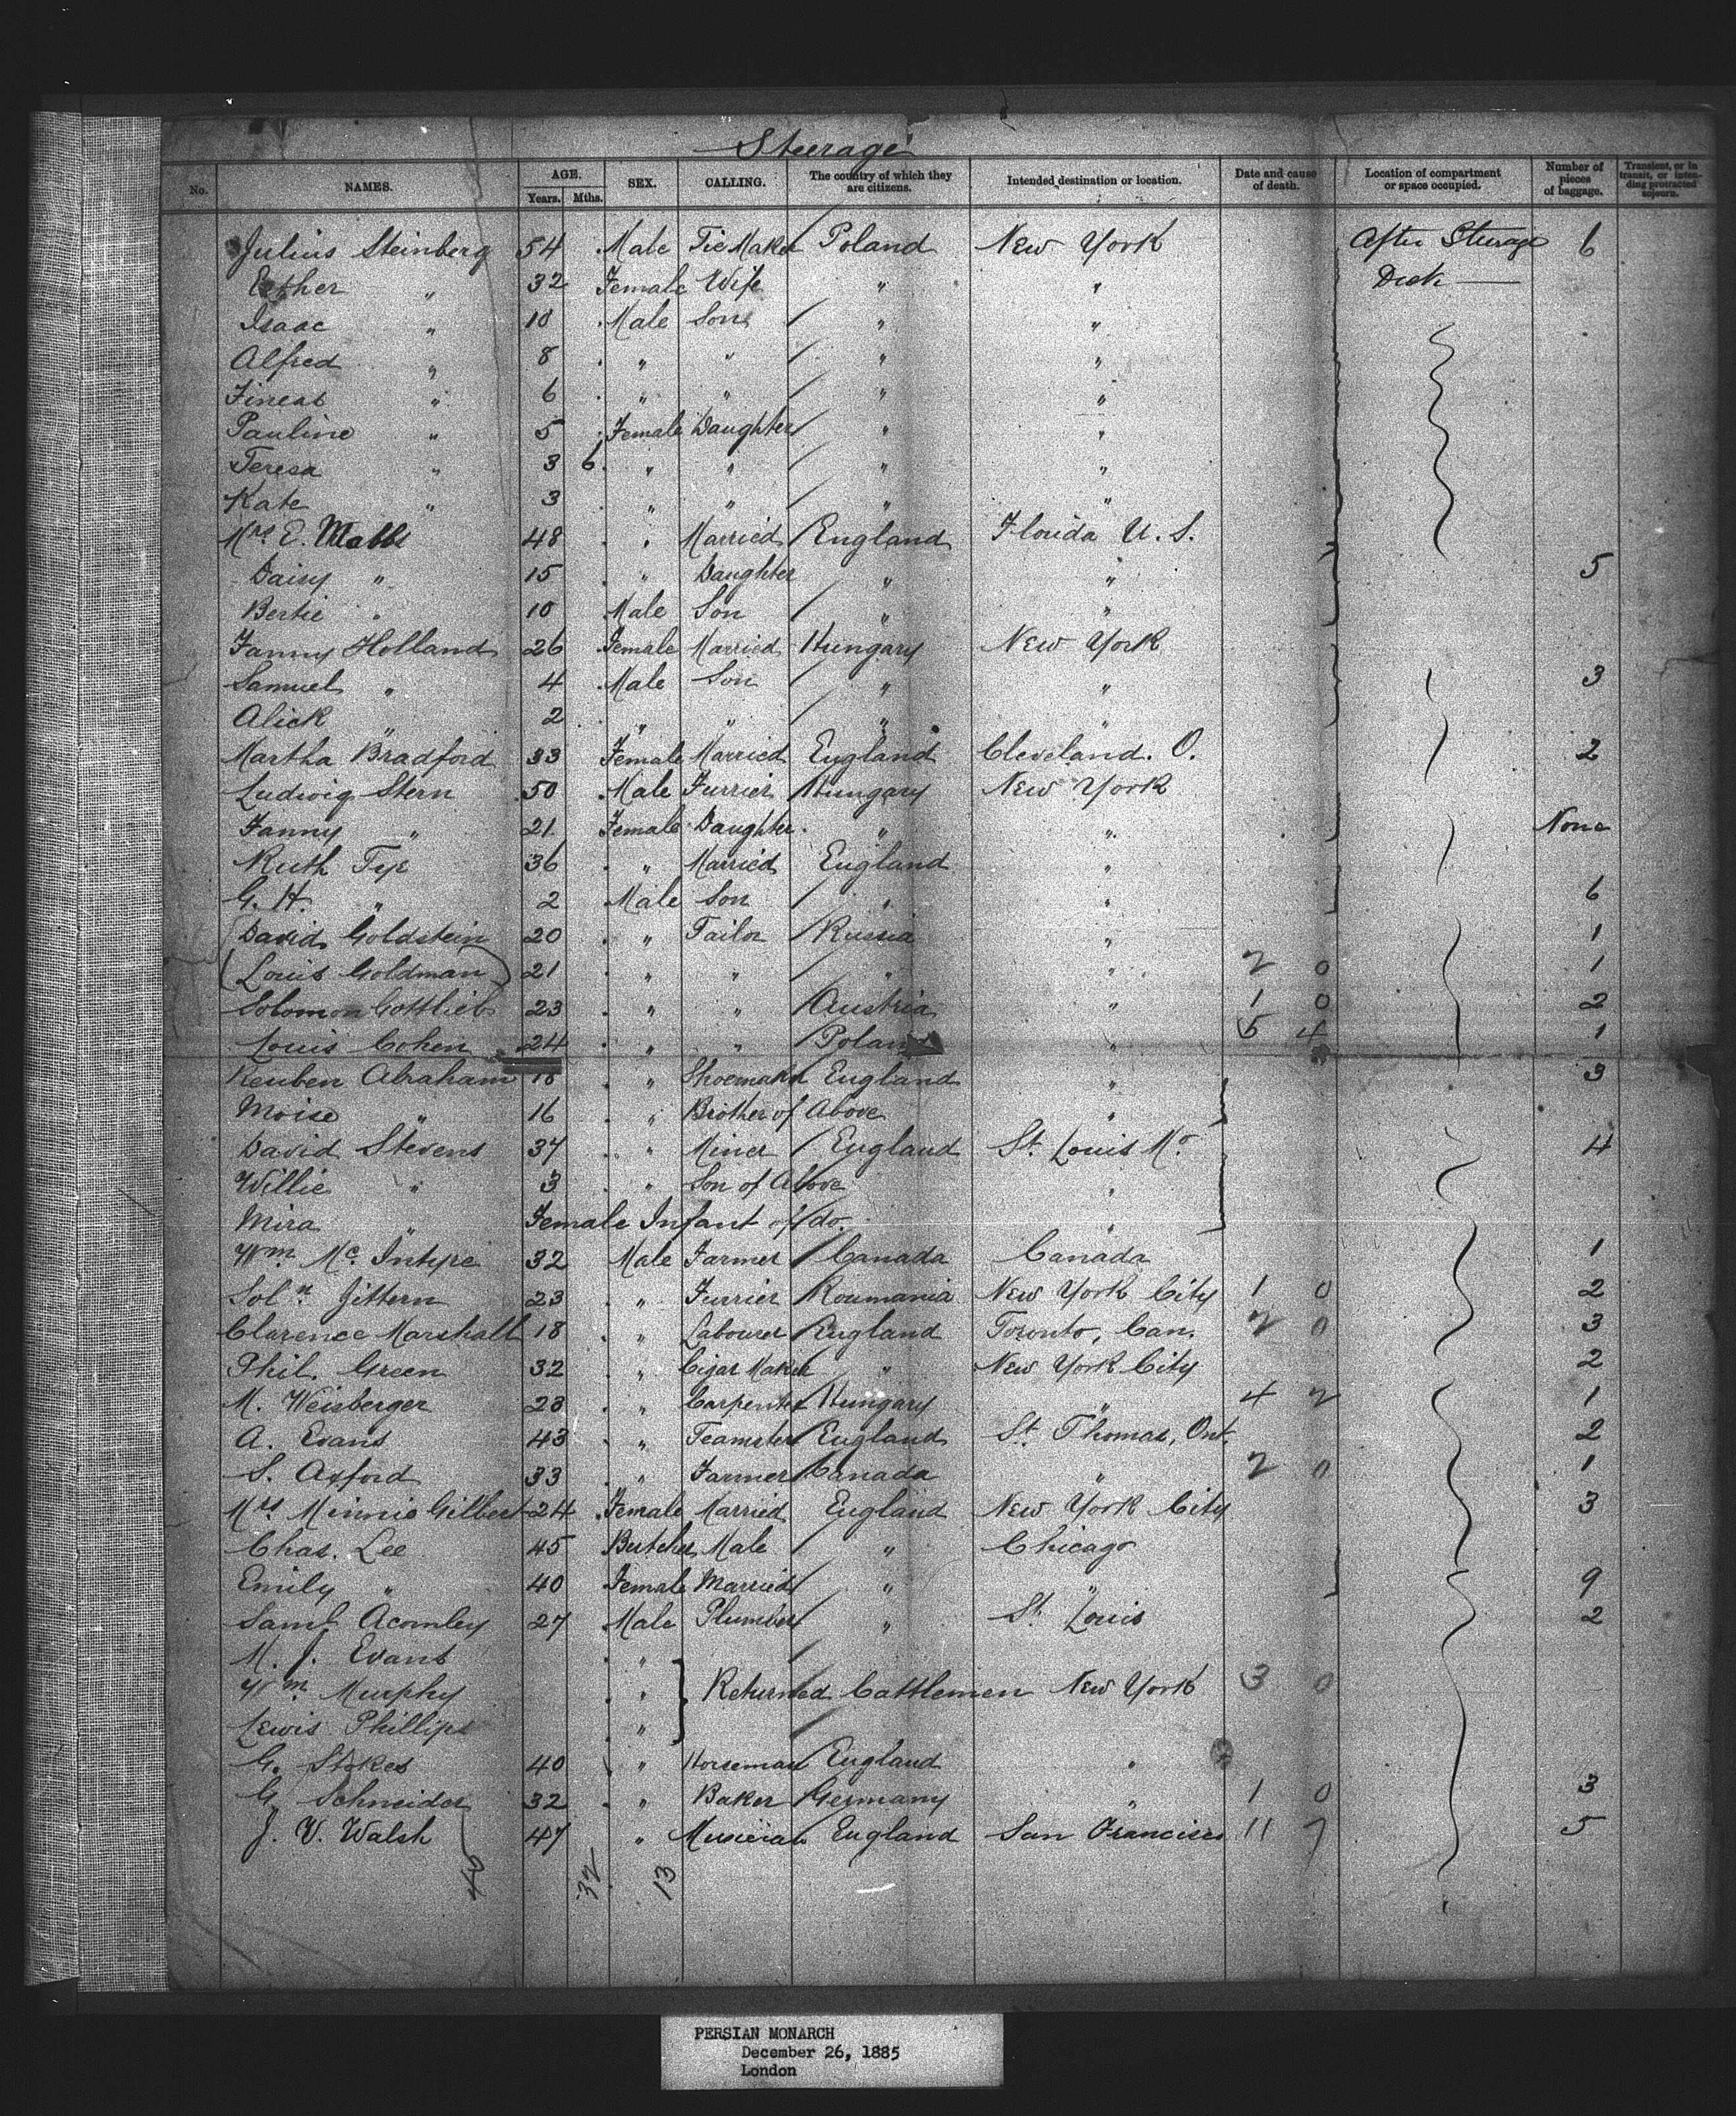 Steerage
No. NAMES. AGE. Years. Mths. SEX. CALLING. The country of which they are citizens. Intended destination or location. Date and cause of death. Location of compartment or space occupied. Number of pieces of baggage. Transient, or in transit, or intending protracted sojourn.
Julius Steinberg 54 Male Tie Maker Poland New York After Steerage 6
Esther " 32 Female Wife " " Deck
Isaac " 10 Male Son " "
Alfred " 8 " " " "
Fineas " 6 " " " "
Pauline " 5 Female Daughter " "
Teresa " 3 6 " " " "
Kate " 3 " " " "
Mrs. E. 48 " Married England Florida U. S.
Daisy " 15 " Daughter " " 5
Bertie " 10 Male Son " "
Fanny Holland 26 Female Married Hungary New York
Samuel " 4 Male Son " " 3
Alick " 2 " " " "
Martha Bradford 33 Female Married England Cleveland. O. 2
Ludwig Stern 50 Male Furrier Hungary New York
Fanny " 21 Female Daughter " " None
Ruth Tye 36 " Married England "
G. H. " 2 Male Son " " 6
David Goldstein 20 " Tailor Russia " 1
Louis Goldman 21 " " " " 2 0 1
Solomon Gottlieb 23 " " Austria " 1 0 2
Louis Cohen 24 " " Poland " 5 4 1
Reuben Abraham 18 " Shoemaker England " 3
Moise " 16 " Brother of Above "
David Stevens 37 " Miner England St. Louis Mo 4
Willie " 3 " Son of Above "
Mira " Female Infant of do. "
Wm. Mc. Intyre 32 Male Farmer Canada Canada 1
Soln. Jittern 23 " Furrier Roumania New York City 1 0 2
Clarence Marshall 18 " Labourer England Toronto, Can. 2 0 3
Phil. Green 32 " Cigar Maker " New York City 2
M. Weisberger 23 " Carpenter Hungary " 4 2 1
A. Evans 43 " Teamster England St. Thomas, Ont. 2
S. Axford 33 " Farmer Canada " 2 0 1
Mrs Minnie Gilbert 24 Female Married England New York City 3
Chas. Lee 45 Butcher Male " Chicago
Emily " 40 Female Married " " 9
Saml. Acomley 27 Male Plumber " St. Louis 2
M. J. Evans "
Wm. Murphy " Returned Cattlemen New York 3 0
Lewis Phillips "
G. Stokes 40 " Horseman England "
G. Schneider 32 " Baker Germany " 1 0 3
J. V. Walsh 47 " Musician England San Francisco 11 7 5
32 13
PERSIAN MONARCH
December 26, 1885
London